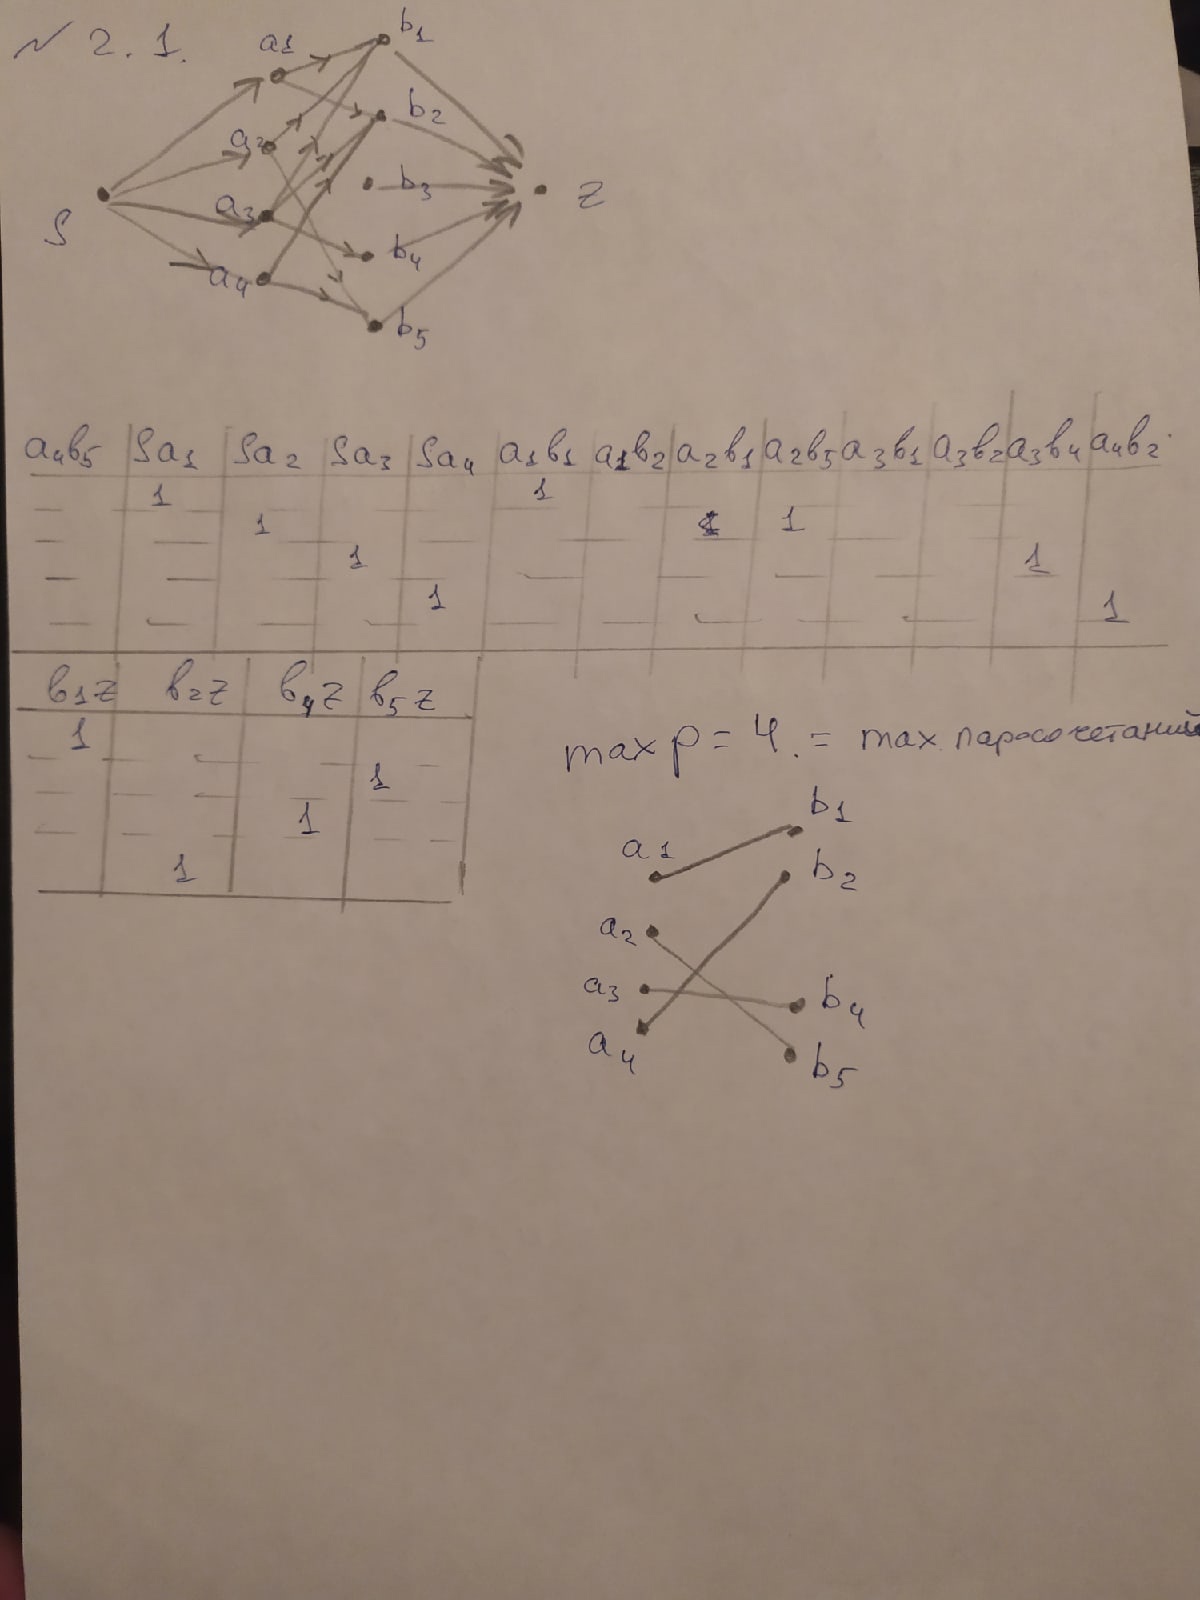 № 2.1.
a1 b1
b2
a2
b3 Z
a3
S b4
a4
b5
a4b5 Sa1 Sa2 Sa3 Sa4 a1b1 a1b2 a2b1 a2b5 a3b1 a3b2 a3b4 a4b2
1 1
1 1
1 1
1 1
b1z b2z b4z b5z
1
1
1
1
max p = 4. = max паросочетаний
b1
a1
b2
a2
a3 b4
a4
b5